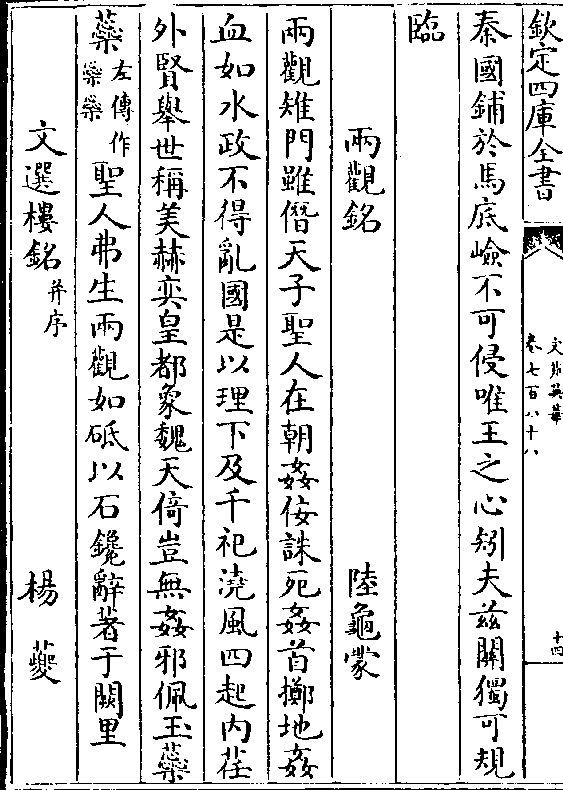 欽定四庫全書
文苑英華
卷七百八十八
十四
秦國鋪於馬底嶮不可侵唯王之心矧夫兹關獨可規
臨
兩觀銘 陸龜蒙
兩觀雉門雖僭天子聖人在朝姦佞誅死姦首擲地姦
血如水政不得亂國是以理下及千祀澆風四起内荏
外賢舉世稱美赫奕皇都象魏天倚豈無姦邪佩玉蘂
蘂左傳作蘂蘂聖人弗生兩觀如砥以石鑱辭著于闕里
文選樓銘并序 楊夔